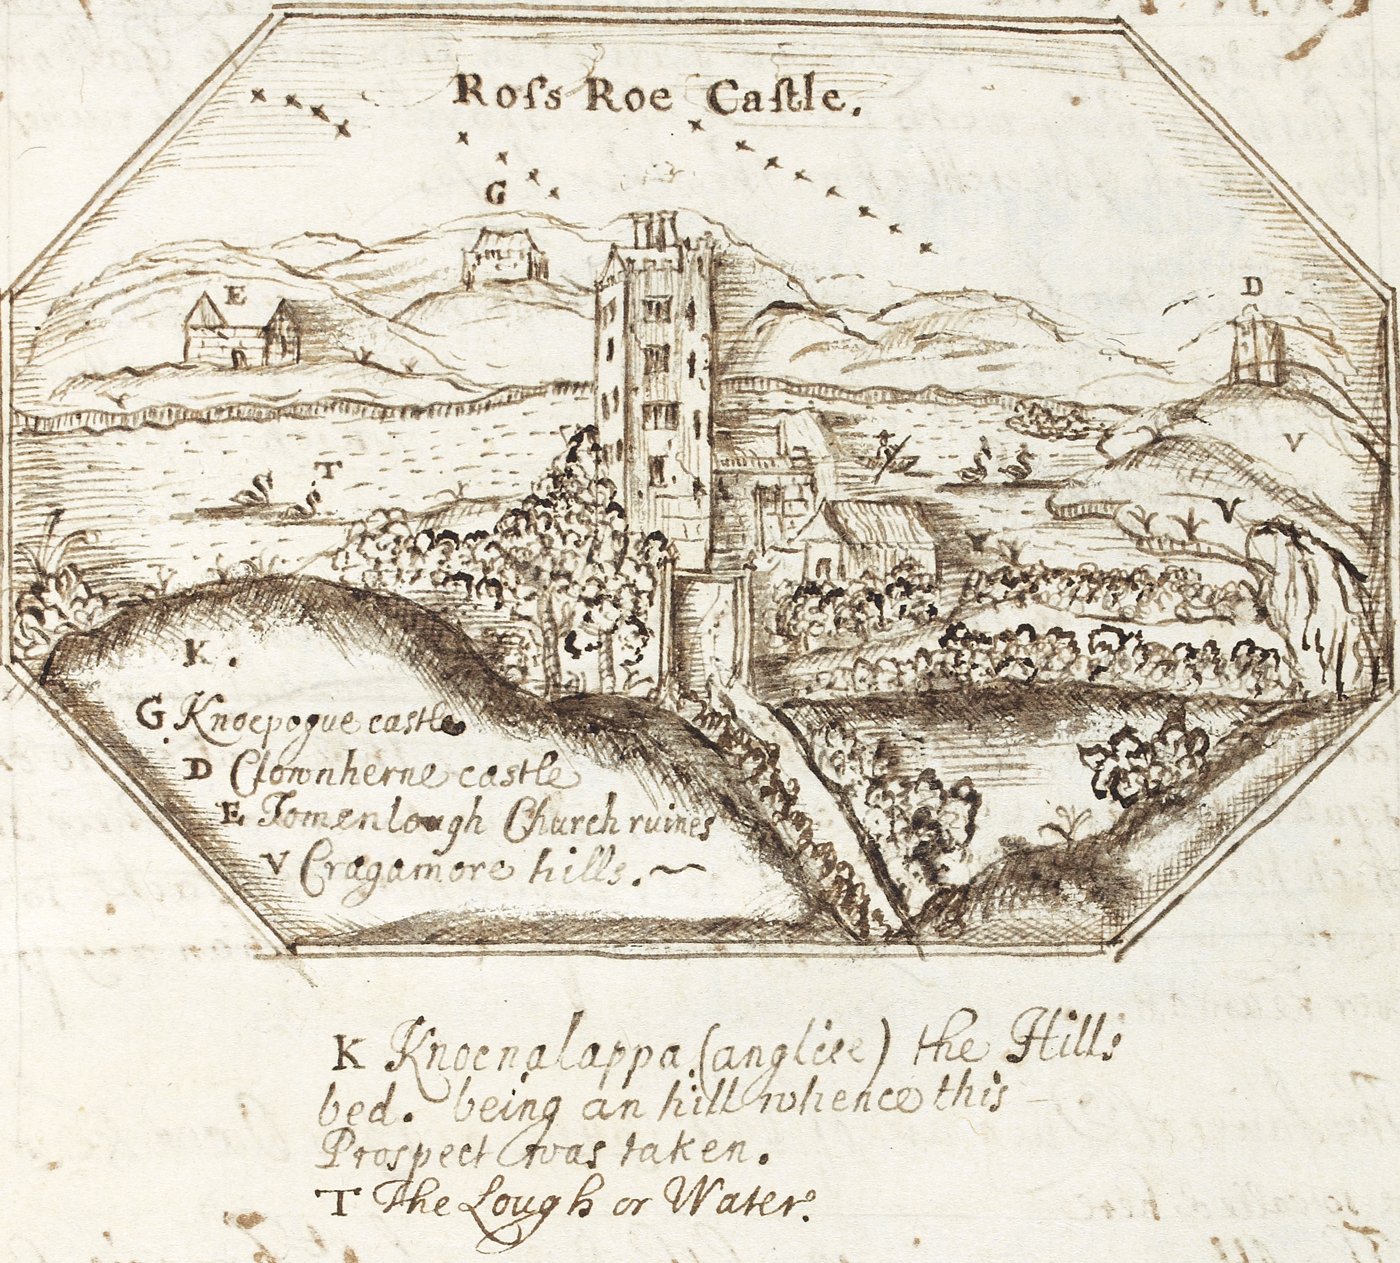 Roſs Roe Caſtle.
G
E
D
T
V
V
K.
G. Knoepogue castle
D Clownherne castle
E Tomenlough Church ruines
V Cragamore hills.~
K Knoenalappa (anglice) the Hills
bed. being an hill whence this
Prospect was taken.
T The Lough or Water.